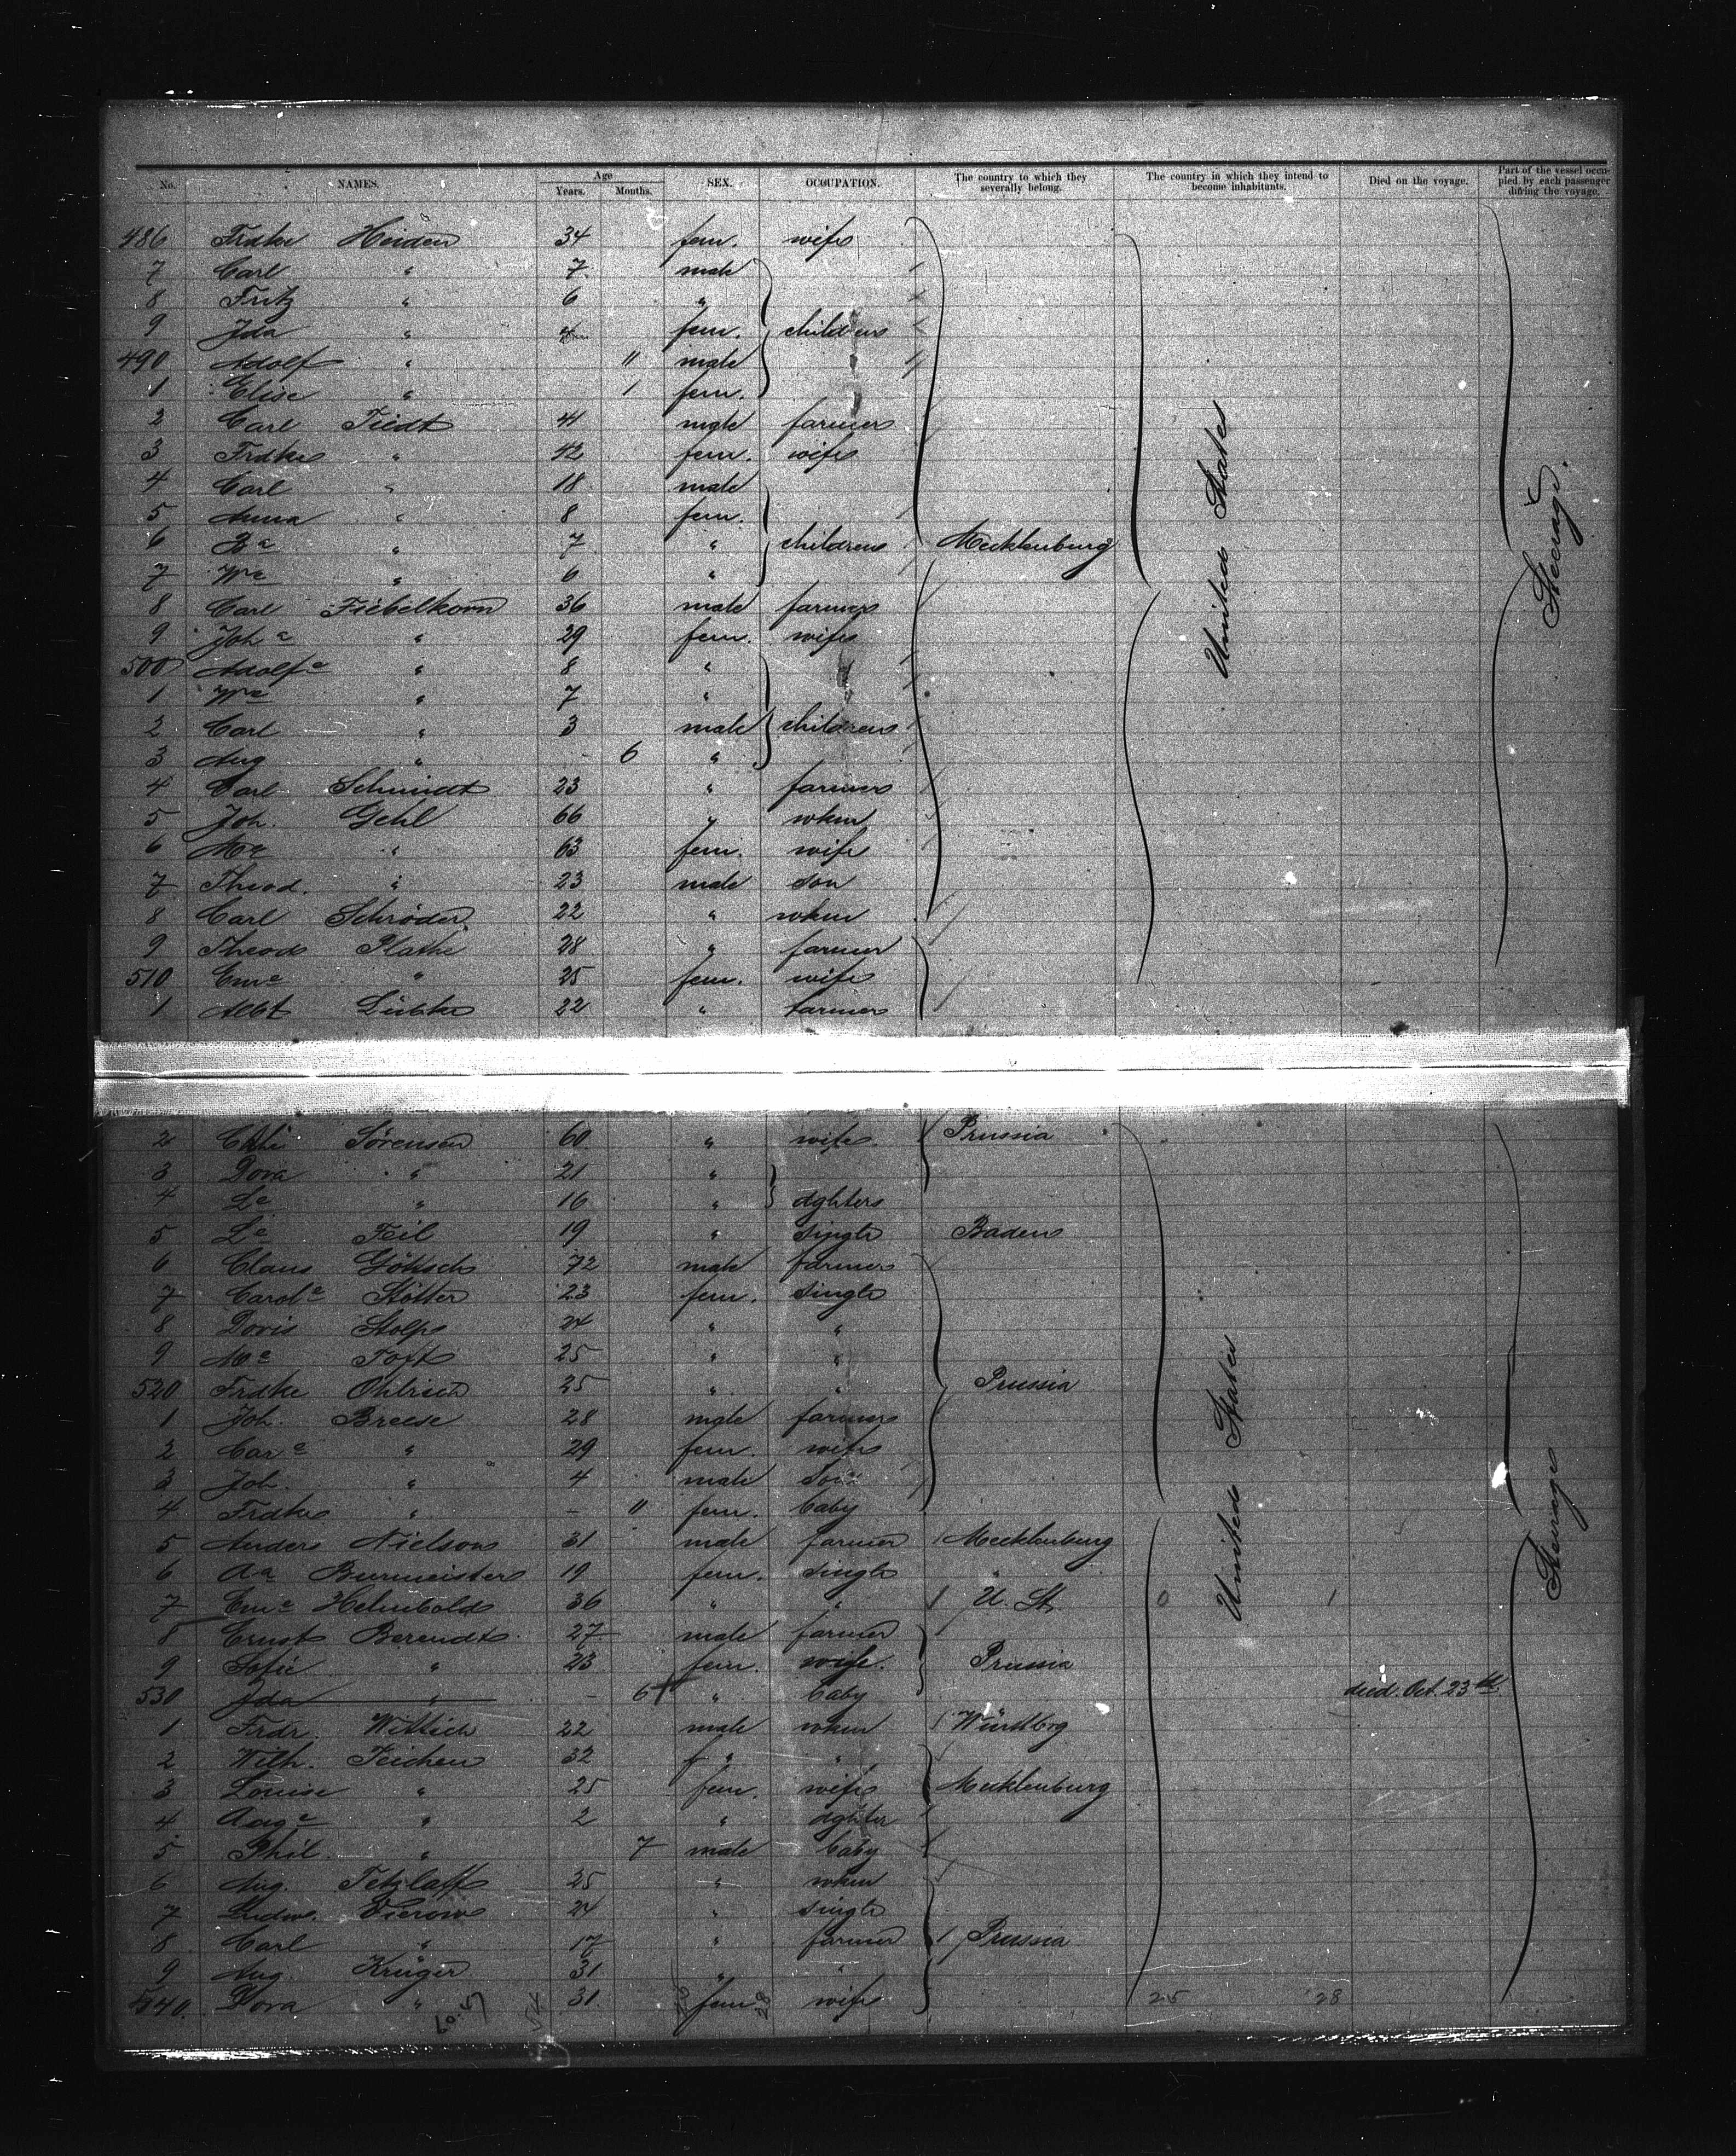 No. NAMES. Age Years. Months. SEX. OCCUPATION. The country to which they severally belong. The country in which they intend to become inhabitants. Died on the voyage. Part of the vessel occupied by each passenger during the voyage.
486 Frdke Heiden 34 fem. wife
7 Carl " 7 male
8 Fritz " 6 "
9 Ida " 4 fem. children
490 Adolf " 11 male
1 Elise " 1 fem.
2 Carl Tiedt 41 male farmer
3 Frdke " 42 fem. wife
4 Carl " 18 male
5 Anna " 8 fem.
6 " 7 " children Mecklenburg United States Steerage.
7 We " 6 "
8 Carl Fiebelkorn 36 male farmer
9 Johe " 29 fem. wife
500 Adolfe " 8 "
1 We " 7 "
2 Carl " 3 male children
3 Aug " - 6 "
4 Carl Schmidt 23 " farmer
5 Joh. Gehl 66 " wkm
6 Me " 63 fem. wife
7 Theod. " 23 male son
8 Carl Schröder 22 " wkm
9 Theod Plathe 28 " farmer
510 Eme " 25 fem. wife
1 Albt Lübke 22 " farmer
2 Sørensen 60 " wife Prussia
3 Dora " 21 "
4 Le " 16 " dghters
5 Le Feil 19 " single Baden
6 Claus Göttsch 72 male farmer
7 Carole Stötter 23 fem. single
8 Doris Stolp 24 " "
9 Me Toft 25 " "
520 Frdke Ohlrich 25 " " Prussia
1 Joh. Breese 28 male farmer
2 Care " 29 fem. wife
3 Joh. " 4 male son
4 Frdke " - 11 fem. baby
5 Anders Nielson 31 male farmer Mecklenburg United States Steerage
6 Aa Burmeister 19 fem. single "
7 Eme Helmbold 36 " " U. St. 0 1
8 Ernst Berendt 27 male farmer
9 Sofie " 23 fem. wife. Prussia
530 Ida " - 6 " baby died Oct. 23th.
1 Frdr. Wittich 22 male wkm Würtbrg
2 Wilh. Teichen 32 " "
3 Louise " 25 fem. wife Mecklenburg
4 Auge " 2 " dghter
5 Phil. " 7 male baby
6 Aug. Tetzlaff 25 " wkm
7 Ludw. Vierow 24 " single
8 Carl " 17 " farmer Prussia
9 Aug. Krüger 31 " "
540. Dora " 31. fem wife 25 28